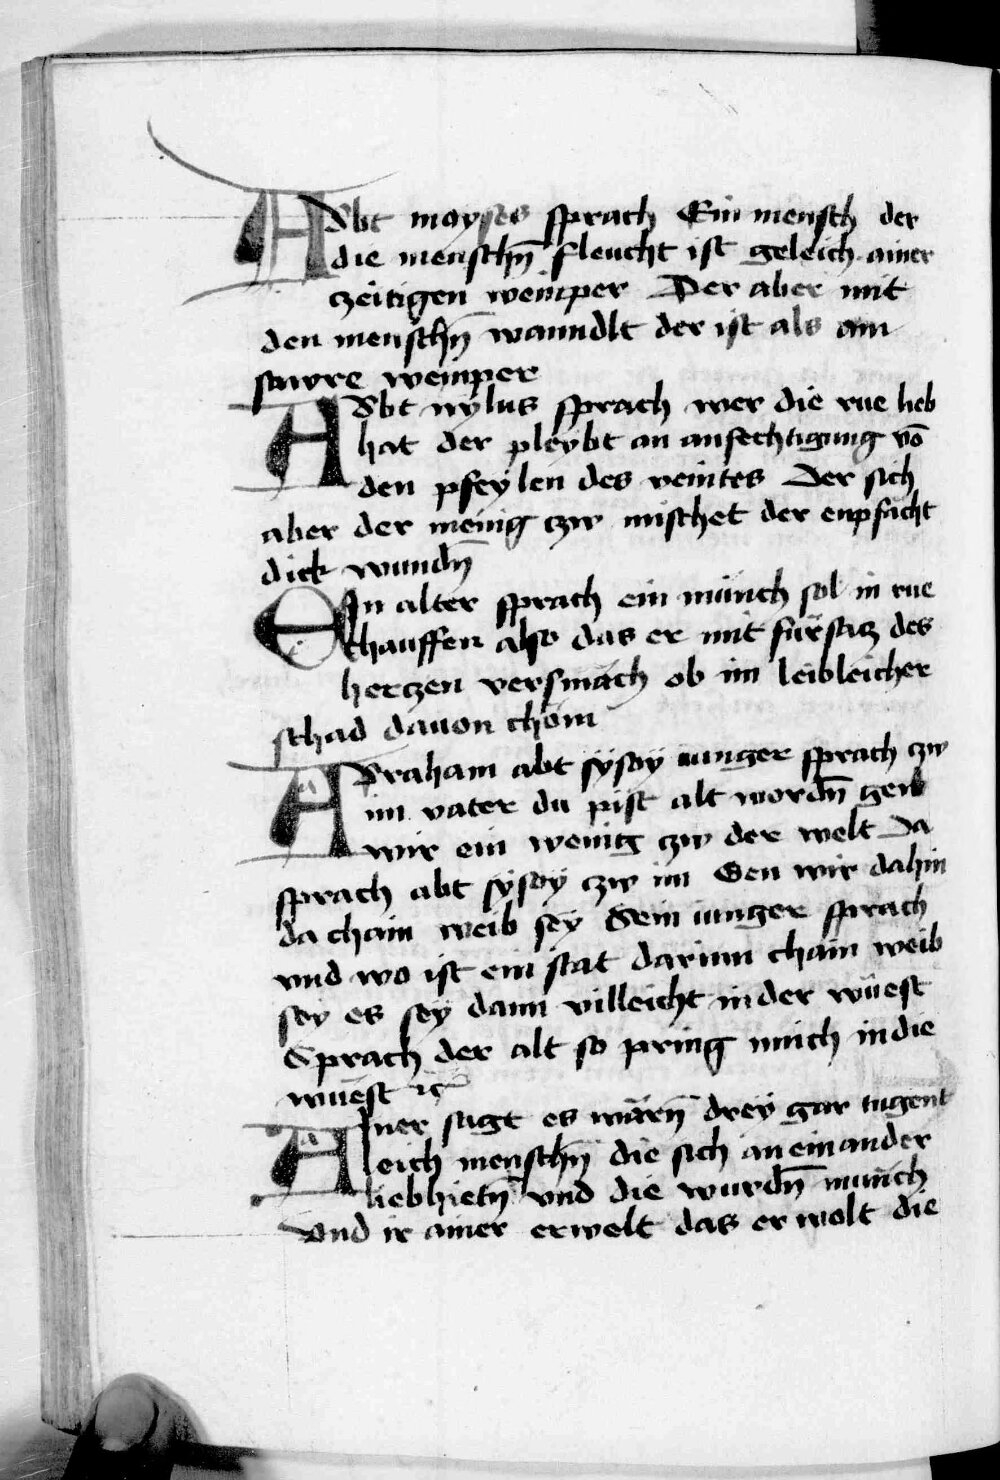 Abt moyses sprach Ein mensch der
die menschn̄ fleucht ist geleich ainer
czeitigen weinper Der aber mit
den menschn̄ wanndlt der ist als ain
sawre weinper
Abt nylus sprach wer die rue lieb
hat der pleybt an anfechtigung vō
den pfeylen des veintes Der sich
aber der menig czw mischet der enpfācht
dick wundn̄
Ein alter sprach ein münch sol in rue
chauffen also das er mit fürsacz des
herczen versmäch ob im leibleicher
schad dauon chöm
Abraham abt sysoy iunger sprach czw
im vater du pist alt wordn̄ gen
wir ein wenig czw der welt Da
sprach abt sysoy czw im Gen wir dahin
da chain weib sey Sein iunger sprach
vnd wo ist ein stat darinn chain weib
sey es sey dann villeicht in der wüest
Sprach der alt so pring mich in die
wüest ꝛc
Ainer sagt es wärn̄ drey gar tugent
leich menschn̄ die sich an einander
liebhietn̄ vnd die wurdn̄ münch
Vnd ir ainer erwelt das er wolt die